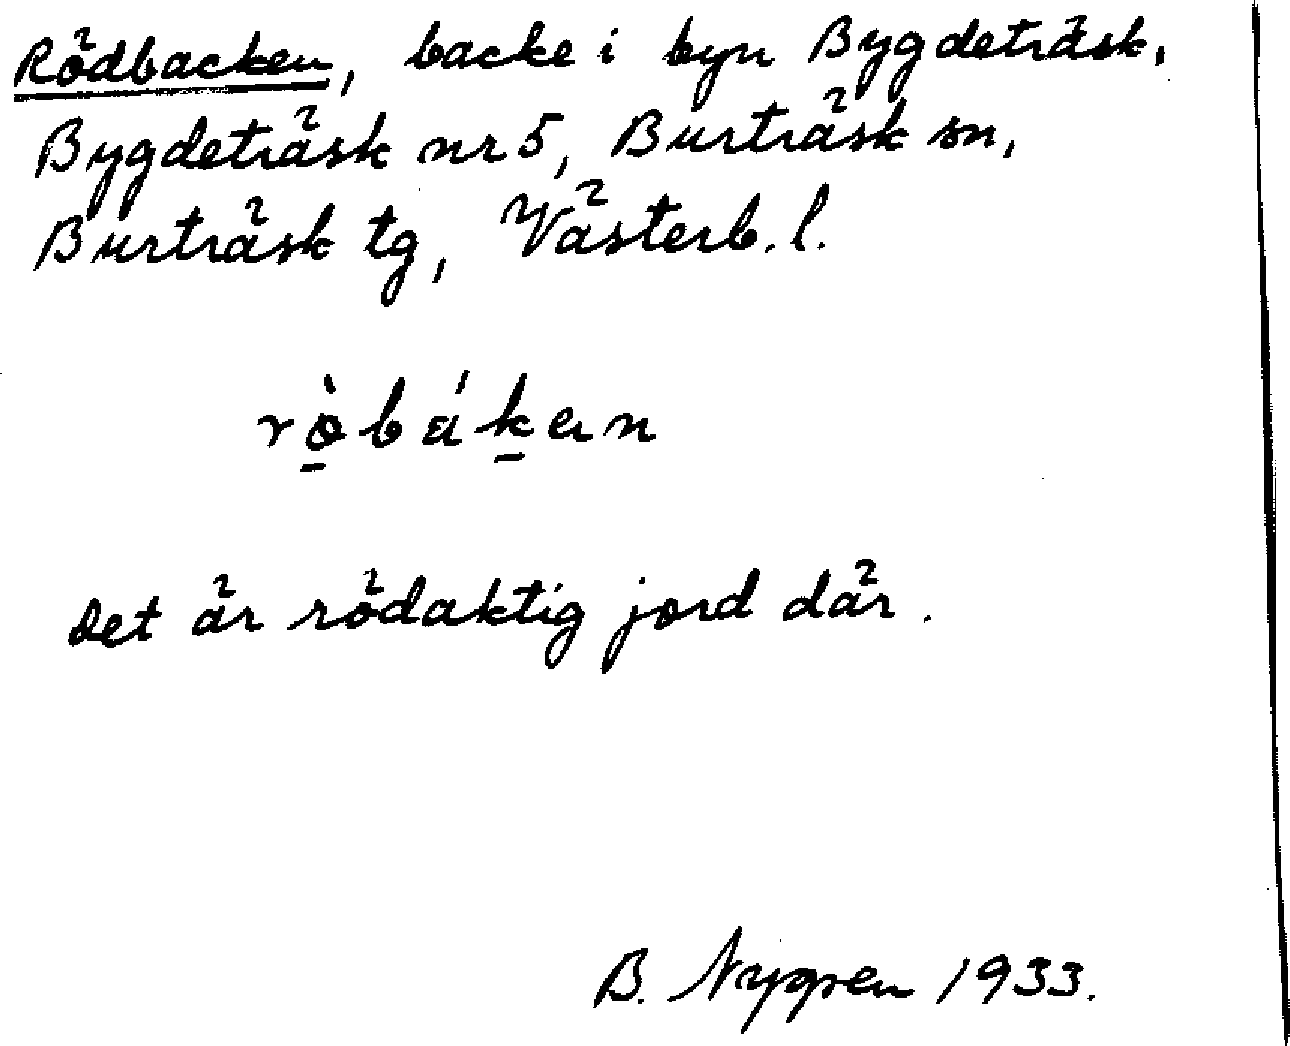 Rödbacken, backe i byn Bygdeträsk,
Bygdeträsk nr 5, Burträsk sn,
Burträsk tg, Västerb. l.
rö̀báken
Det är rödaktig jord där.
B. Nygren 1933.